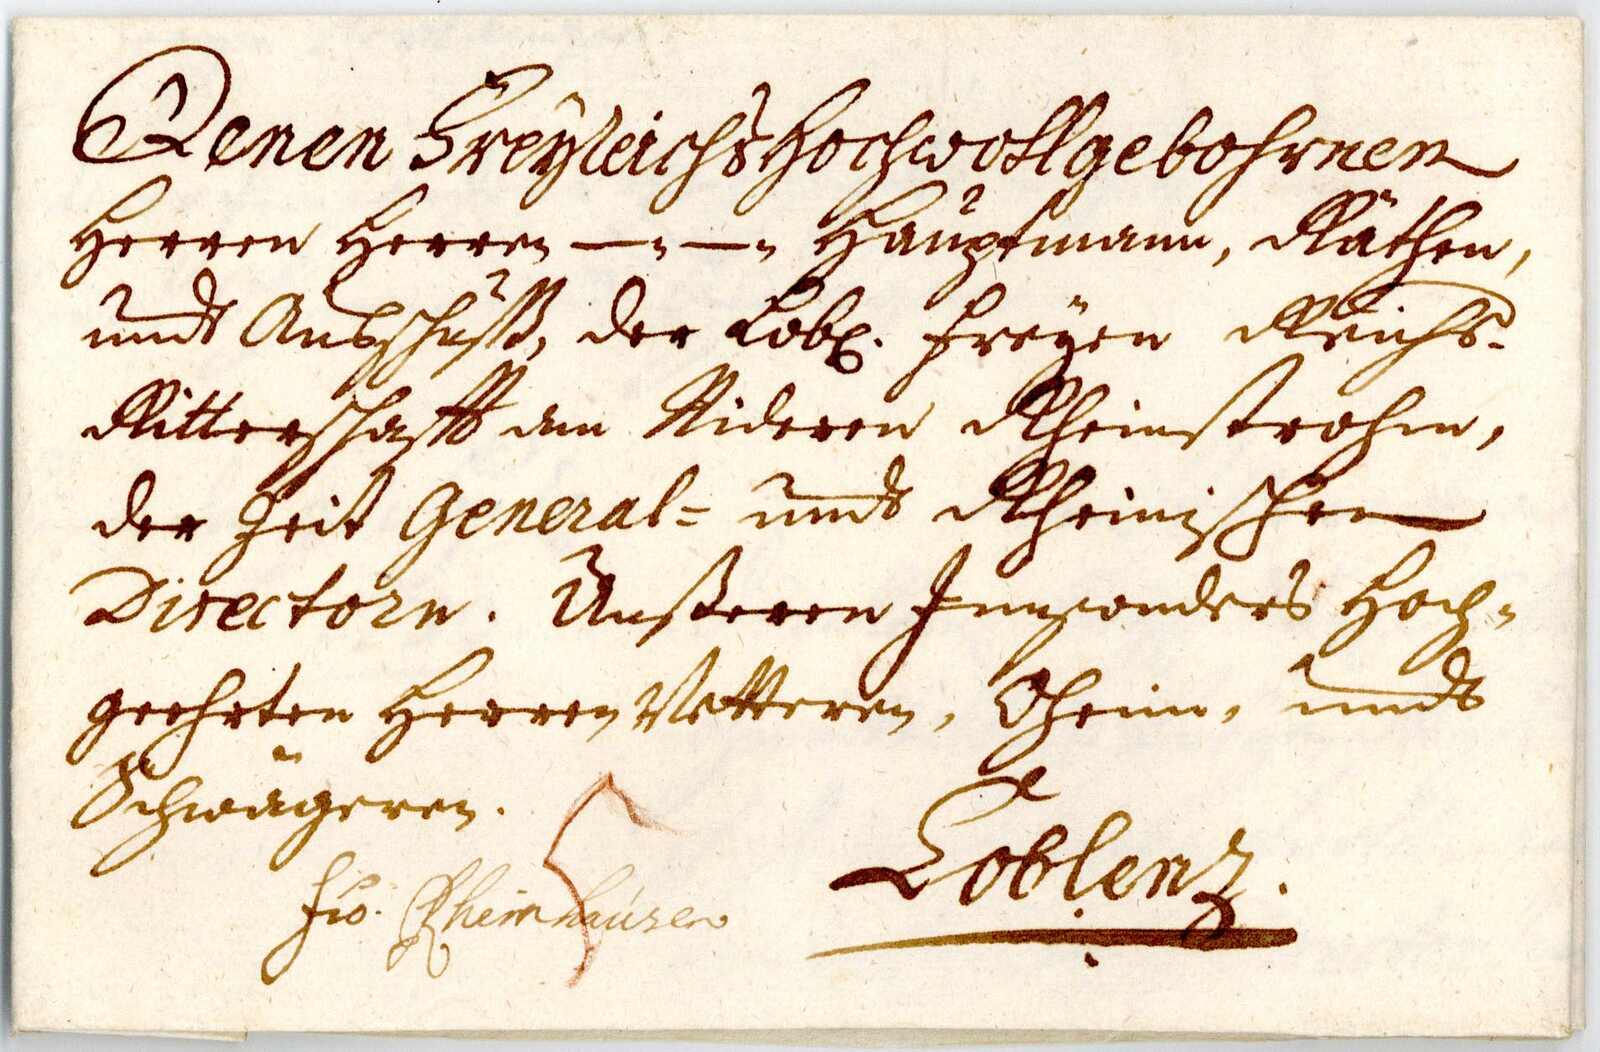 Denen Freyreichs Hochwollgebohrnen
Herren Herren —„ —„ Hauptmann, Räthen,
undt Ausschuß, der Löbl. freyen Reichs-
Ritterschafft am Nideren Rheinstrohm,
der Zeit General= undt Rheinischen
Directorn. Unßeren Innsonders Hoch=
geehrten Herren Vetteren, Oheim, undt
Schwägeren.
Coblenz.
fco. Rheinhausen